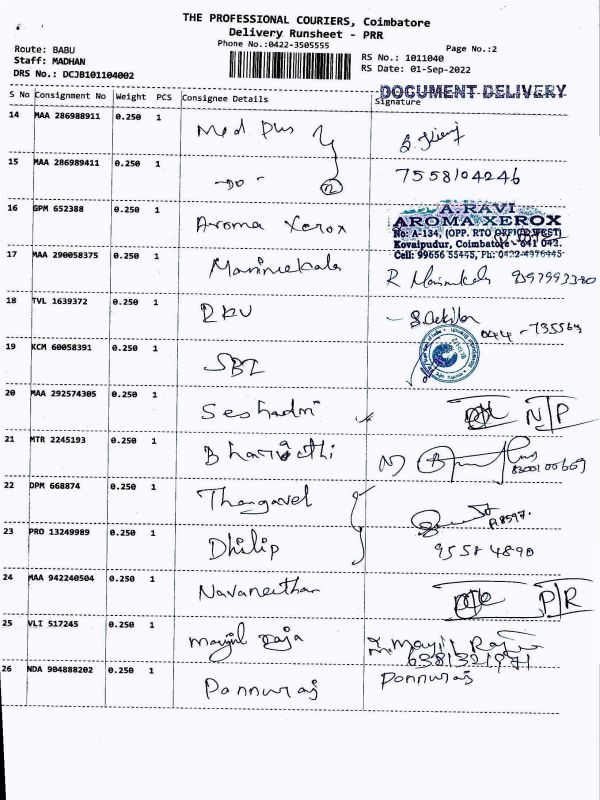 THE PROFESSIONAL COURIERS, Coimbatore
Delivery Runsheet - PRR
Phone No.:0422-3505555
Page No.:2
Route: BABU
Staff: MADHAN
DRS No.: DCJB101104002
RS No.: 1011040
RS Date: 01-Sep-2022
DOCUMENT DELIVERY
S No Consignment No Weight PCS Consignee Details Signature
14 MAA 286988911 0.250 1 Med Plus
15 MAA 286989411 0.250 1 -DO- 2 7558104246
16 GPM 652388 0.250 1 Aroma Xerox
A. RAVI
AROMA XEROX
No: A-134, (OPP. RTO OFFICE WEST)
Kovaipudur, Coimbatore - 641 042.
Cell: 99656 55445, Ph: 0422-4976445
17 MAA 290058375 0.250 1 Manimekala R Manimekala
18 TVL 1639372 0.250 1
19 KCM 60058391 0.250 1 SBI
20 MAA 292574305 0.250 1 Seshadri N/P
21 MTR 2245193 0.250 1 Bharathi
22 DPM 668874 0.250 1 Thangavel
23 PRO 13249989 0.250 1 Dhilip
24 MAA 942240504 0.250 1 Navaneethan P/R
25 VLI 517245 0.250 1 Mayil Raja
26 NDA 904888202 0.250 1 Ponnuraj Ponnuraj